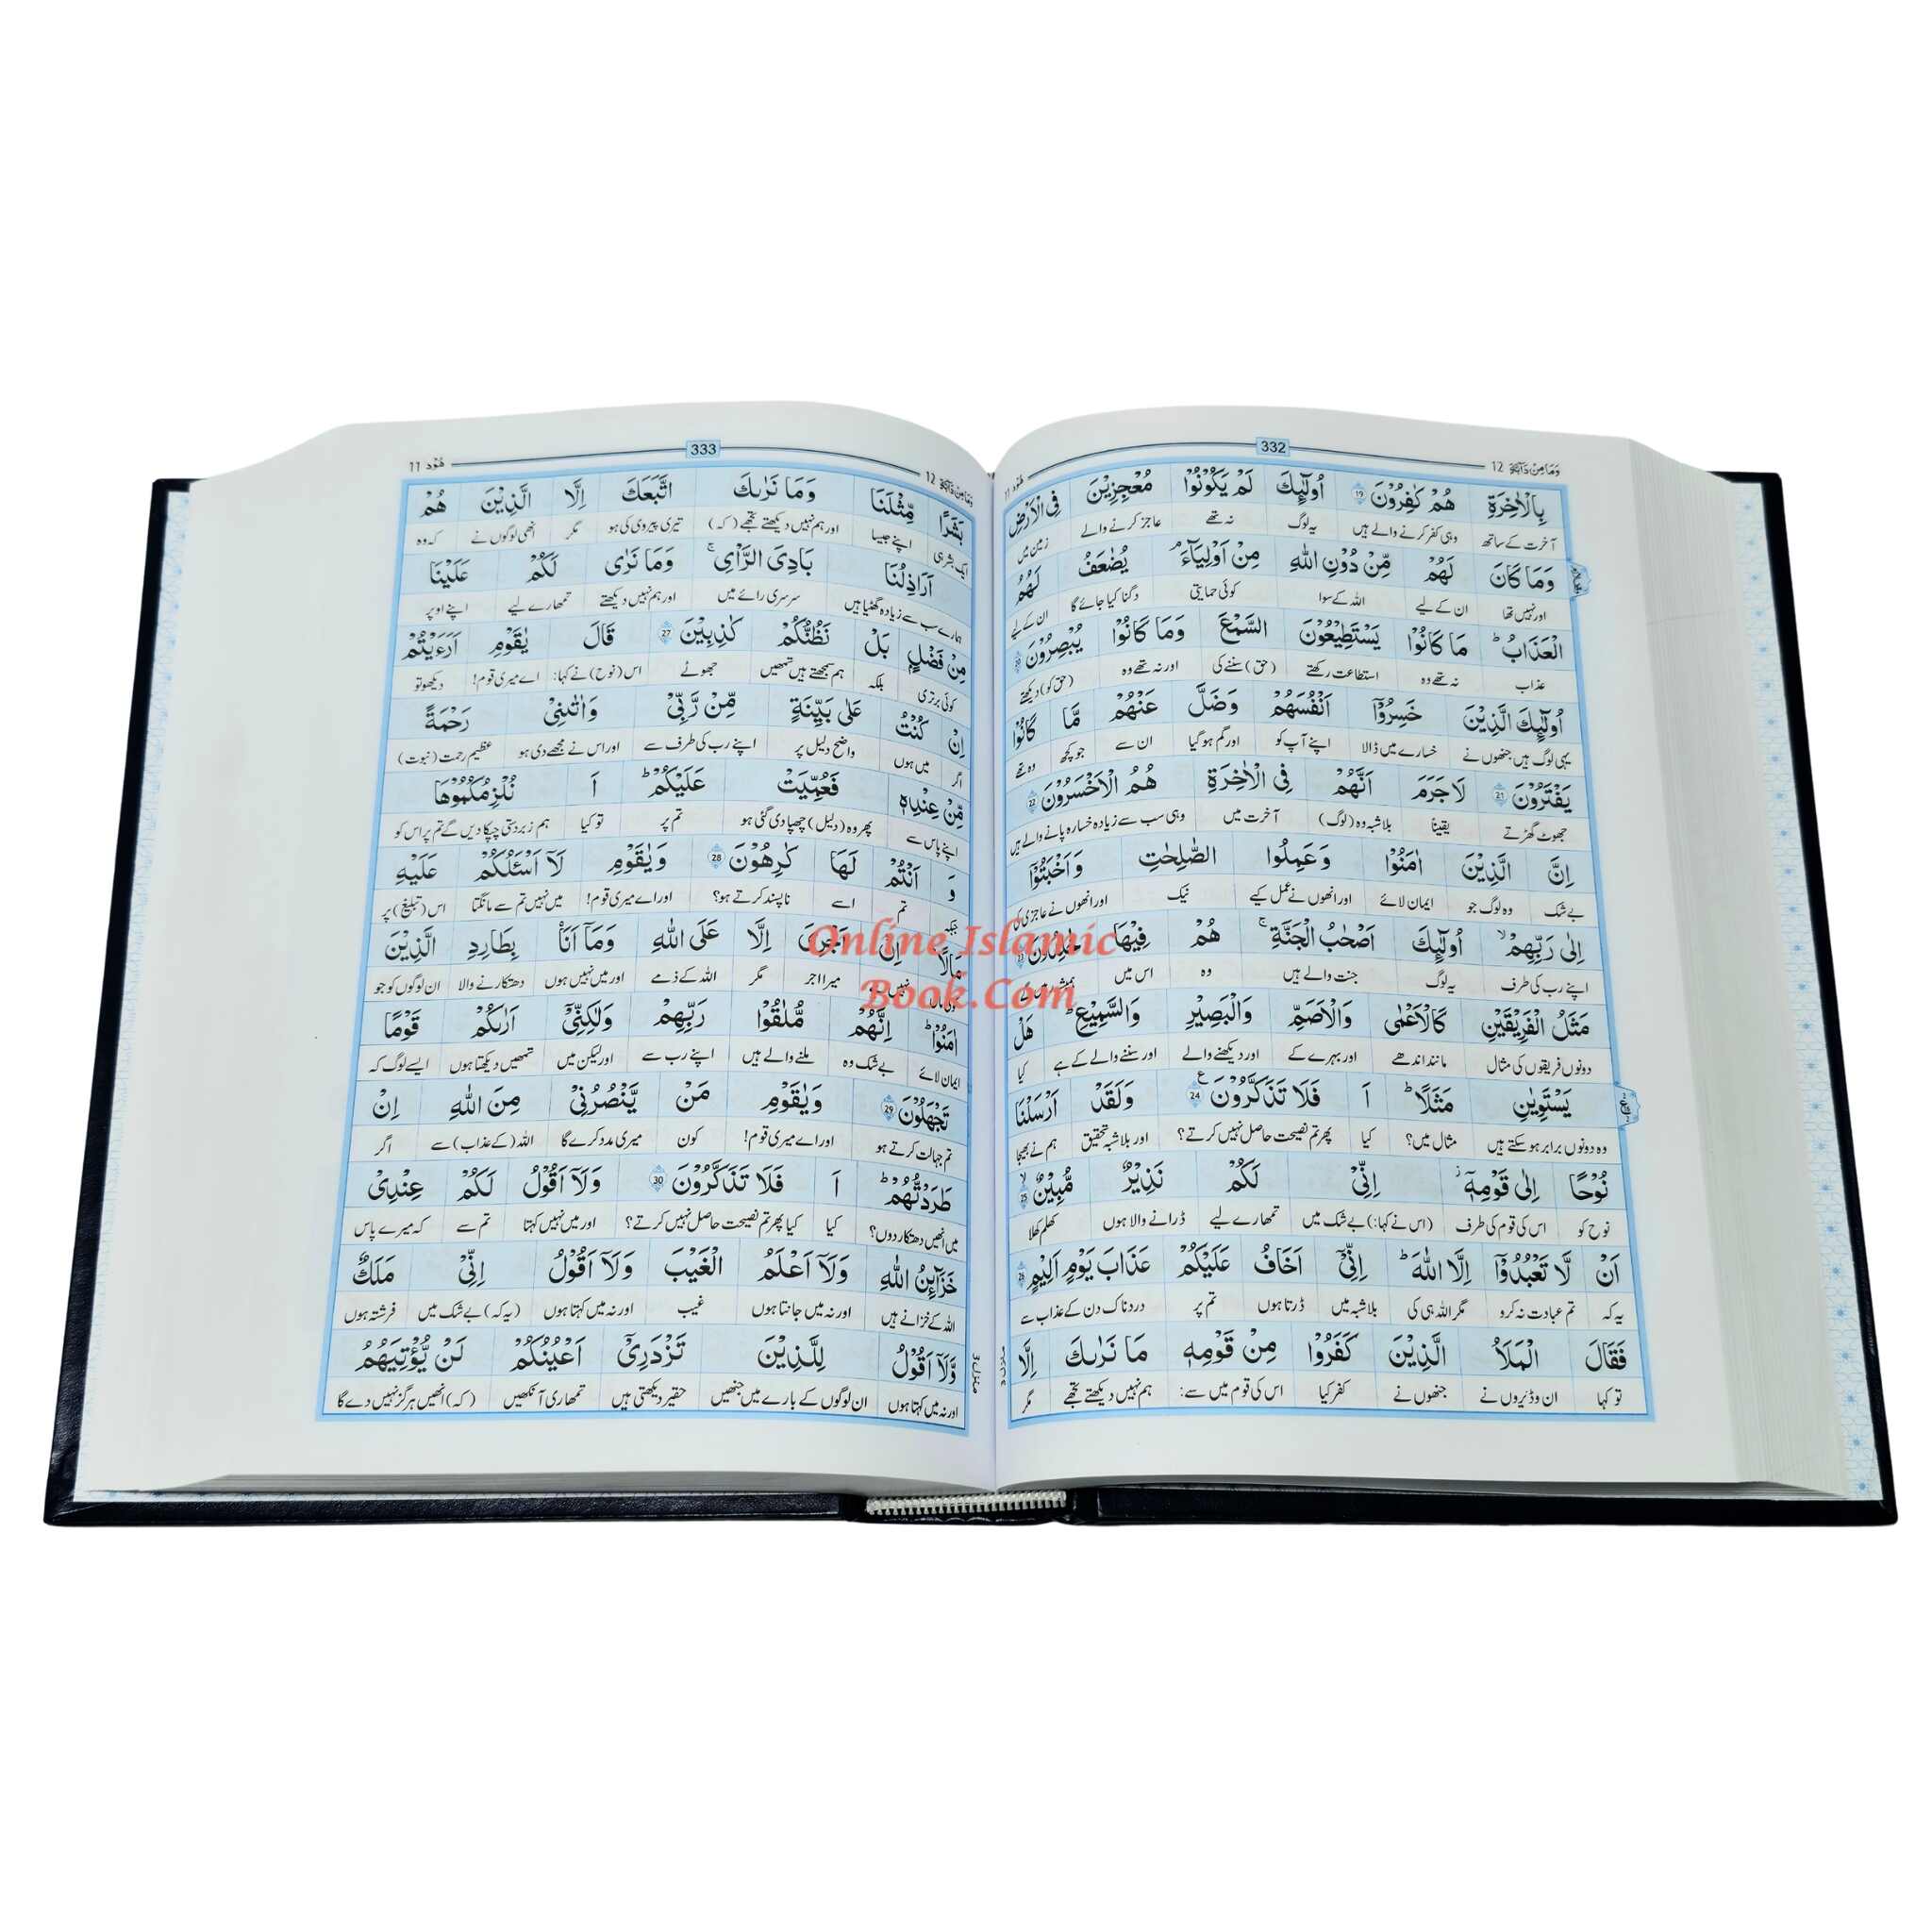 وَمَا مِنْ دَآبَّةٍ 12
332
هُوْد 11
بِالْاٰخِرَةِ هُمْ كٰفِرُوْنَ 19 اُولٰٓئِكَ لَمْ يَكُوْنُوْا مُعْجِزِيْنَ فِى الْاَرْضِ
آخرت کے ساتھ وہی کفر کرنے والے ہیں یہ لوگ نہ تھے عاجز کرنے والے زمین میں
وَمَا كَانَ لَهُمْ مِّنْ دُوْنِ اللّٰهِ مِنْ اَوْلِيَآءَ ۘ يُضٰعَفُ لَهُمُ
اور نہیں تھا ان کے لیے اللہ کے سوا کوئی حمایتی دگنا کیا جائے گا ان کے لیے
الْعَذَابُ ؕ مَا كَانُوْا يَسْتَطِيْعُوْنَ السَّمْعَ وَمَا كَانُوْا يُبْصِرُوْنَ 20
عذاب نہ تھے وہ استطاعت رکھتے (حق) سننے کی اور نہ تھے وہ (حق کو) دیکھتے
اُولٰٓئِكَ الَّذِيْنَ خَسِرُوْٓا اَنْفُسَهُمْ وَضَلَّ عَنْهُمْ مَّا كَانُوْا
یہی لوگ ہیں جنھوں نے خسارے میں ڈالا اپنے آپ کو اور گم ہو گیا ان سے جو کچھ وہ تھے
يَفْتَرُوْنَ 21 لَا جَرَمَ اَنَّهُمْ فِى الْاٰخِرَةِ هُمُ الْاَخْسَرُوْنَ 22
جھوٹ گھڑتے یقیناً بلاشبہ وہ (لوگ) آخرت میں وہی سب سے زیادہ خسارہ پانے والے ہیں
اِنَّ الَّذِيْنَ اٰمَنُوْا وَعَمِلُوا الصّٰلِحٰتِ وَاَخْبَتُوْٓا
بے شک وہ لوگ جو ایمان لائے اور انھوں نے عمل کیے نیک اور انھوں نے عاجزی کی
اِلٰى رَبِّهِمْ ۙ اُولٰٓئِكَ اَصْحٰبُ الْجَنَّةِ ۚ هُمْ فِيْهَا خٰلِدُوْنَ 23
اپنے رب کی طرف یہ لوگ جنت والے ہیں وہ اس میں
مَثَلُ الْفَرِيْقَيْنِ كَالْاَعْمٰى وَالْاَصَمِّ وَالْبَصِيْرِ وَالسَّمِيْعِ ؕ هَلْ
دونوں فریقوں کی مثال مانند اندھے اور بہرے کے اور دیکھنے والے اور سننے والے کے ہے کیا
يَسْتَوِيٰنِ مَثَلًا ؕ اَ فَلَا تَذَكَّرُوْنَ 24 وَلَقَدْ اَرْسَلْنَا
وہ دونوں برابر ہو سکتے ہیں مثال میں؟ کیا پھر تم نصیحت حاصل نہیں کرتے؟ اور بلاشبہ تحقیق ہم نے بھیجا
نُوْحًا اِلٰى قَوْمِهٖٓ ز اِنِّىْ لَكُمْ نَذِيْرٌ مُّبِيْنٌ ۙ 25
نوح کو اس کی قوم کی طرف (اس نے کہا:) بے شک میں تمھارے لیے ڈرانے والا ہوں کھلم کھلا
اَنْ لَّا تَعْبُدُوْٓا اِلَّا اللّٰهَ ؕ اِنِّىْٓ اَخَافُ عَلَيْكُمْ عَذَابَ يَوْمٍ اَلِيْمٍ 26
یہ کہ تم عبادت نہ کرو مگر اللہ ہی کی بلاشبہ میں ڈرتا ہوں تم پر دردناک دن کے عذاب سے
فَقَالَ الْمَلَاُ الَّذِيْنَ كَفَرُوْا مِنْ قَوْمِهٖ مَا نَرٰىكَ اِلَّا
تو کہا ان وڈیروں نے جنھوں نے کفر کیا اس کی قوم میں سے: ہم نہیں دیکھتے تجھے مگر
وَمَا مِنْ دَآبَّةٍ 12
333
هُوْد 11
بَشَرًا مِّثْلَنَا وَمَا نَرٰىكَ اتَّبَعَكَ اِلَّا الَّذِيْنَ هُمْ
ایک بشر ہی اپنے جیسا اور ہم نہیں دیکھتے تجھے (کہ) تیری پیروی کی ہو مگر انھی لوگوں نے کہ وہ
اَرَاذِلُنَا بَادِىَ الرَّاْىِ ۚ وَمَا نَرٰى لَكُمْ عَلَيْنَا
ہمارے سب سے زیادہ گھٹیا ہیں سرسری رائے میں اور ہم نہیں دیکھتے تمھارے لیے اپنے اوپر
مِنْ فَضْلٍۢ بَلْ نَظُنُّكُمْ كٰذِبِيْنَ 27 قَالَ يٰقَوْمِ اَرَءَيْتُمْ
کوئی برتری بلکہ ہم سمجھتے ہیں تمھیں جھوٹے اس (نوح) نے کہا: اے میری قوم! دیکھو تو
اِنْ كُنْتُ عَلٰى بَيِّنَةٍ مِّنْ رَّبِّىْ وَاٰتٰىنِىْ رَحْمَةً
اگر میں ہوں واضح دلیل پر اپنے رب کی طرف سے اور اس نے مجھے دی ہو عظیم رحمت (نبوت)
مِّنْ عِنْدِهٖ فَعُمِّيَتْ عَلَيْكُمْ ؕ اَ نُلْزِمُكُمُوْهَا
اپنے پاس سے پھر وہ (دلیل) چھپا دی گئی ہو تم پر تو کیا ہم زبردستی چپکا دیں گے تم پر اس کو
وَ اَنْتُمْ لَهَا كٰرِهُوْنَ 28 وَيٰقَوْمِ لَآ اَسْـَٔلُكُمْ عَلَيْهِ
جبکہ تم اسے ناپسند کرتے ہو؟ اور اے میری قوم! میں نہیں تم سے مانگتا اس (تبلیغ) پر
مَالًا اِنْ اَجْرِىَ اِلَّا عَلَى اللّٰهِ وَمَآ اَنَا۠ بِطَارِدِ الَّذِيْنَ
نہیں میرا اجر مگر اللہ کے ذمے اور میں نہیں ہوں دھتکارنے والا ان لوگوں کو جو
اٰمَنُوْا ؕ اِنَّهُمْ مُّلٰقُوْا رَبِّهِمْ وَلٰكِنِّىْٓ اَرٰىكُمْ قَوْمًا
ایمان لائے بے شک وہ ملنے والے ہیں اپنے رب سے اور لیکن میں تمھیں دیکھتا ہوں ایسے لوگ کہ
تَجْهَلُوْنَ 29 وَيٰقَوْمِ مَنْ يَّنْصُرُنِىْ مِنَ اللّٰهِ اِنْ
تم جہالت کرتے ہو اور اے میری قوم! کون میری مدد کرے گا اللہ (کے عذاب) سے اگر
طَرَدْتُّهُمْ ؕ اَ فَلَا تَذَكَّرُوْنَ 30 وَلَآ اَقُوْلُ لَكُمْ عِنْدِىْ
میں انھیں دھتکار دوں؟ کیا کیا پھر تم نصیحت حاصل نہیں کرتے؟ اور میں نہیں کہتا تم سے کہ میرے پاس
خَزَآئِنُ اللّٰهِ وَلَآ اَعْلَمُ الْغَيْبَ وَلَآ اَقُوْلُ اِنِّىْ مَلَكٌ
اللہ کے خزانے ہیں اور نہ میں جانتا ہوں غیب اور نہ میں کہتا ہوں (یہ کہ) بے شک میں فرشتہ ہوں
وَّلَآ اَقُوْلُ لِلَّذِيْنَ تَزْدَرِىْٓ اَعْيُنُكُمْ لَنْ يُّؤْتِيَهُمُ
اور نہ میں کہتا ہوں ان لوگوں کے بارے میں جنھیں حقیر دیکھتی ہیں تمھاری آنکھیں (کہ) انھیں ہرگز نہیں دے گا
منزل 3
Online Islamic
Book.Com